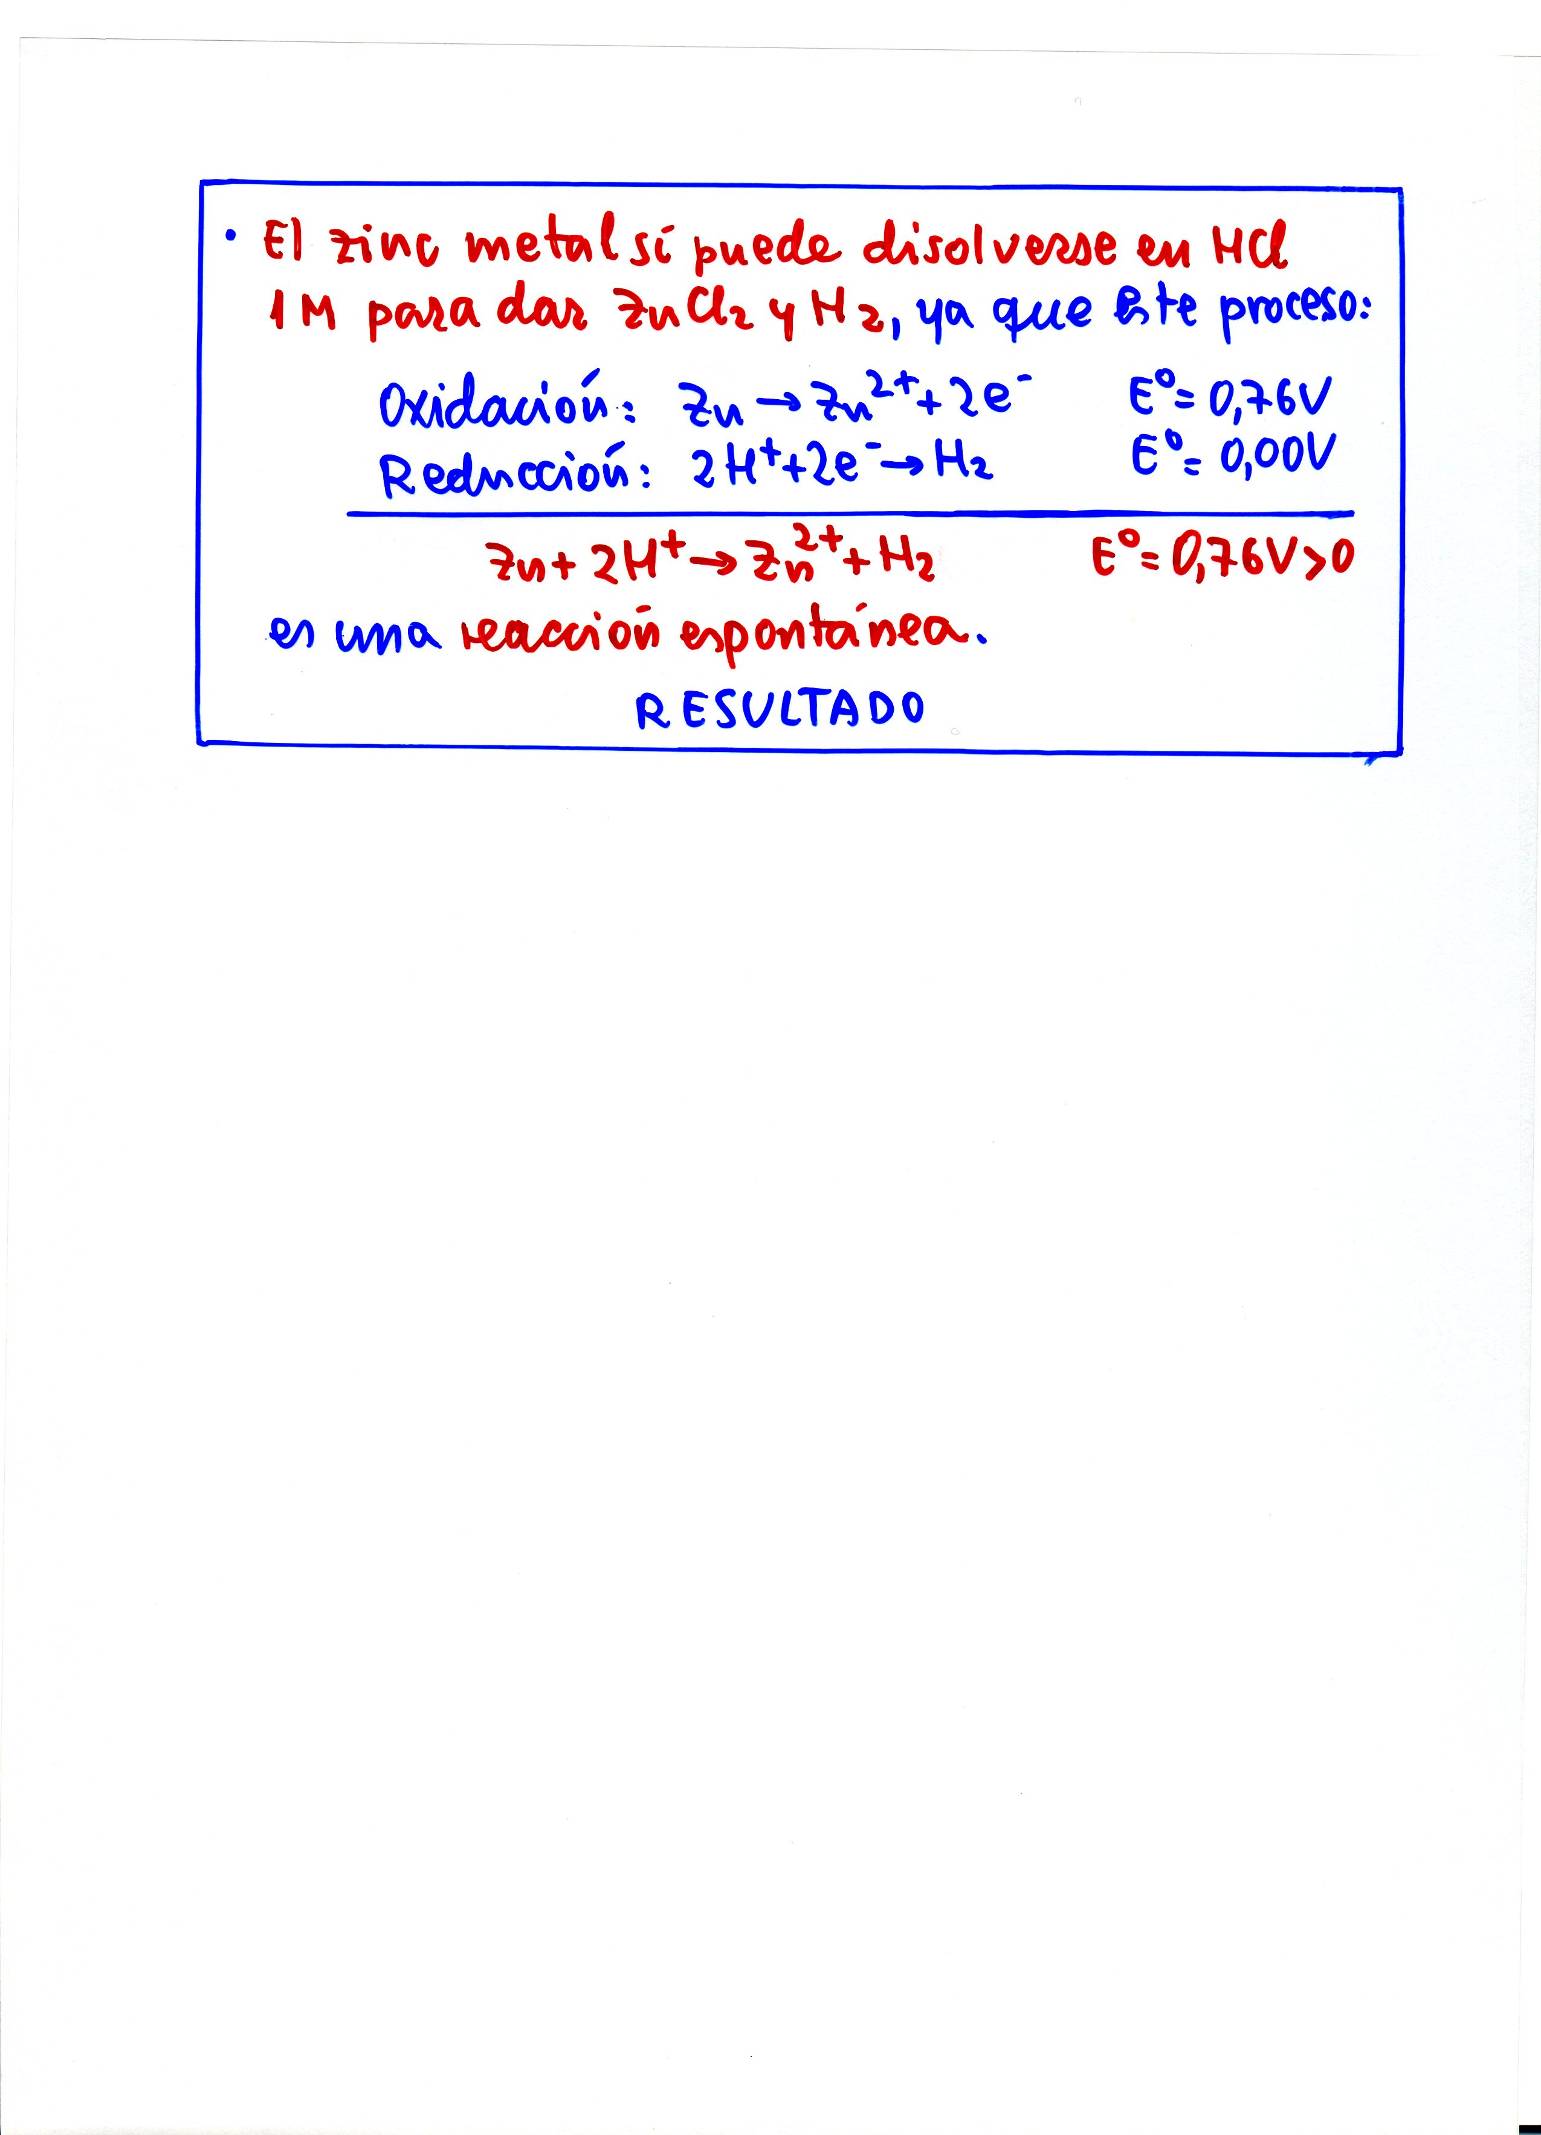 · El zinc metal sí puede disolverse en HCl
1M para dar ZnCl₂ y H₂, ya que este proceso:
Oxidación: Zn → Zn²⁺ + 2e⁻ E⁰ = 0,76V
Reducción: 2H⁺ + 2e⁻ → H₂ E⁰ = 0,00V
Zn + 2H⁺ → Zn²⁺ + H₂ E⁰ = 0,76V > 0
es una reacción espontánea.
RESULTADO